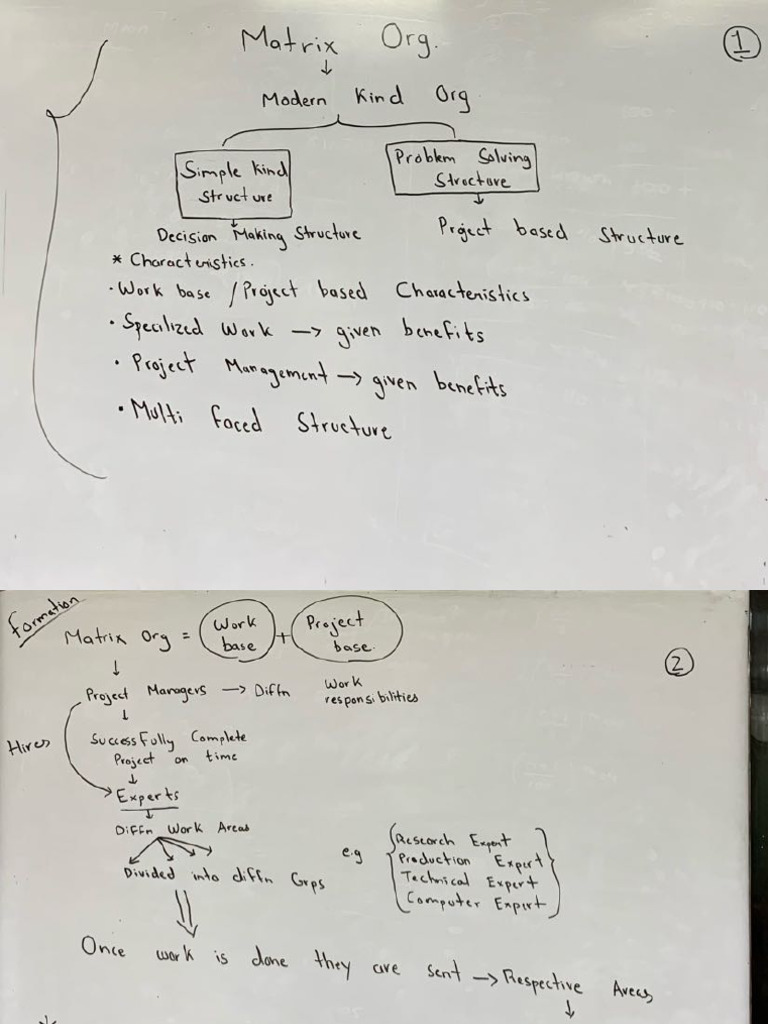 Matrix Org.
1
↓
Modern Kind Org
Simple Kind
Structure
Problem Solving
Structure
↓
↓
Decision Making Structure
Project based Structure
* Characteristics.
· Work base / Project based Characteristics
· Specilized Work → given benefits
· Project Management → given benefits
· Multi faced Structure
Formation
Matrix Org = Work base + Project base.
2
↓
Project Managers → Diffn Work responsibilities
↓
Hires
Successfully Complete
Project on time
↓
Experts
↓
Diffn Work Areas
Divided into diffn Grps
e.g
Research Expert
Production Expert
Technical Expert
Computer Expert
Once work is done they are sent → Respective Areas
↓